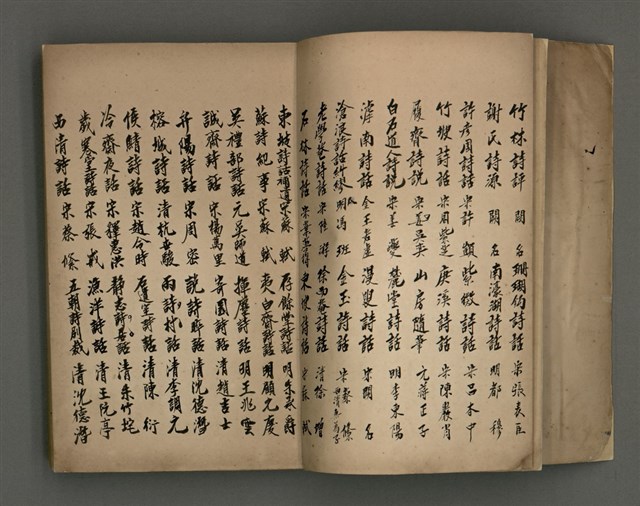 竹林詩評 闕名 珊瑚鈎詩話 宋張表臣
謝氏詩源 闕名 南濠詩話 明都穆
許彥周詩話 宋許顗 紫微詩話 宋呂本中
竹坡詩話 宋周紫芝 庚溪詩話 宋陳巖肖
履齋詩說 宋孫奕 山房隨筆 元蔣正子
白石道人詩說 宋姜夔 麓堂詩話 明李東陽
滹南詩話 金王若虛 漫叟詩話 宋闕名
滄浪詩話糾繆 明馮班 金玉詩話 宋蔡絛
老學菴詩話 宋陸游 徐而菴詩話 清徐增
石林詩話 宋葉夢得 東坡詩話 宋蘇軾
東坡詩話補遺 宋蘇軾 存餘堂詩話 明朱承爵
蘇詩紀事 宋蘇軾 夷白齋詩話 明顧元慶
吳禮部詩話 元吳師道 揮麈詩話 明王兆雲
誠齋詩話 宋楊萬里 寄園詩話 清趙吉士
弁陽詩話 宋周密 說詩晬語 清沈德潛
榕城詩話 清杭世駿 雨村詩話 清李調元
侯鯖詩話 宋趙令時 詩話 清陳衍
冷齋夜話 宋釋惠洪 靜志居詩話 清朱竹垞
歲寒堂詩話 宋張戒 漁洋詩話 清王阮亭
西清詩話 宋蔡絛 五朝詩別裁 清沈德潛